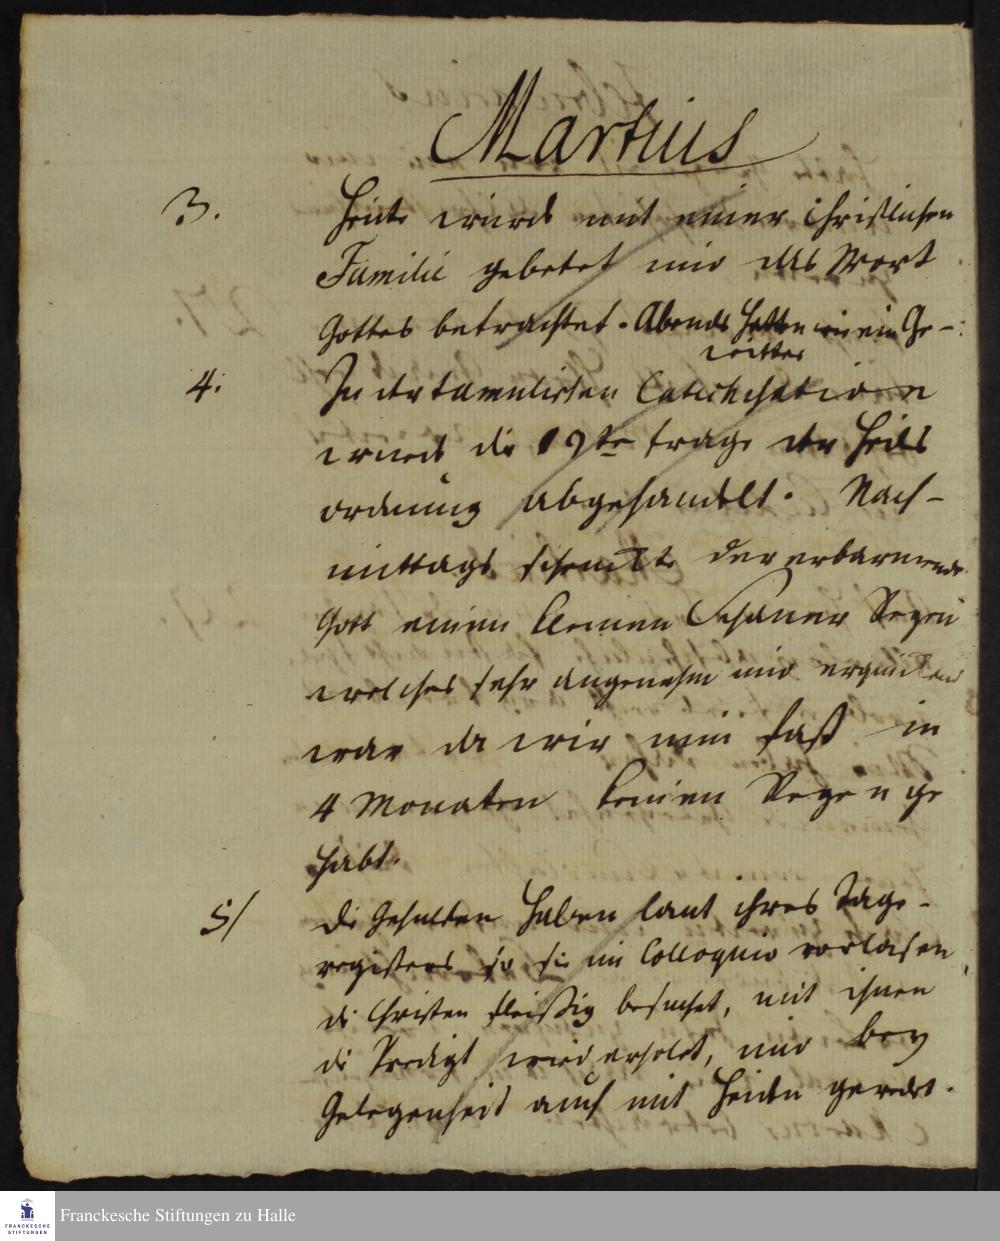 Martius
3. Heute wurde mit einer Christlichen
Familie gebetet und das Wort
Gottes betrachtet. Abends hatten wir ein Ge-
witter
4. In der tamulischen Catechisation
wurde die 19te Frage der Heils
ordnung abgehandelt. Nach-
mittags schenckte der erbarmende
Gott einen kleinen Schauer Regen
welches sehr angenehm und erquickend
war da wir nun fast in
4 Monaten keinen Regen ge
habt.
5/ die Gehülfen haben laut ihres Tage-
registers so sie im Colloquio vorlasen
die Christen fleißig besuchet, mit ihnen
die Predigt wiederholet, und bey
Gelegenheit auch mit Heiden geredet.
Franckesche Stiftungen zu Halle
FRANCKESCHE
STIFTUNGEN